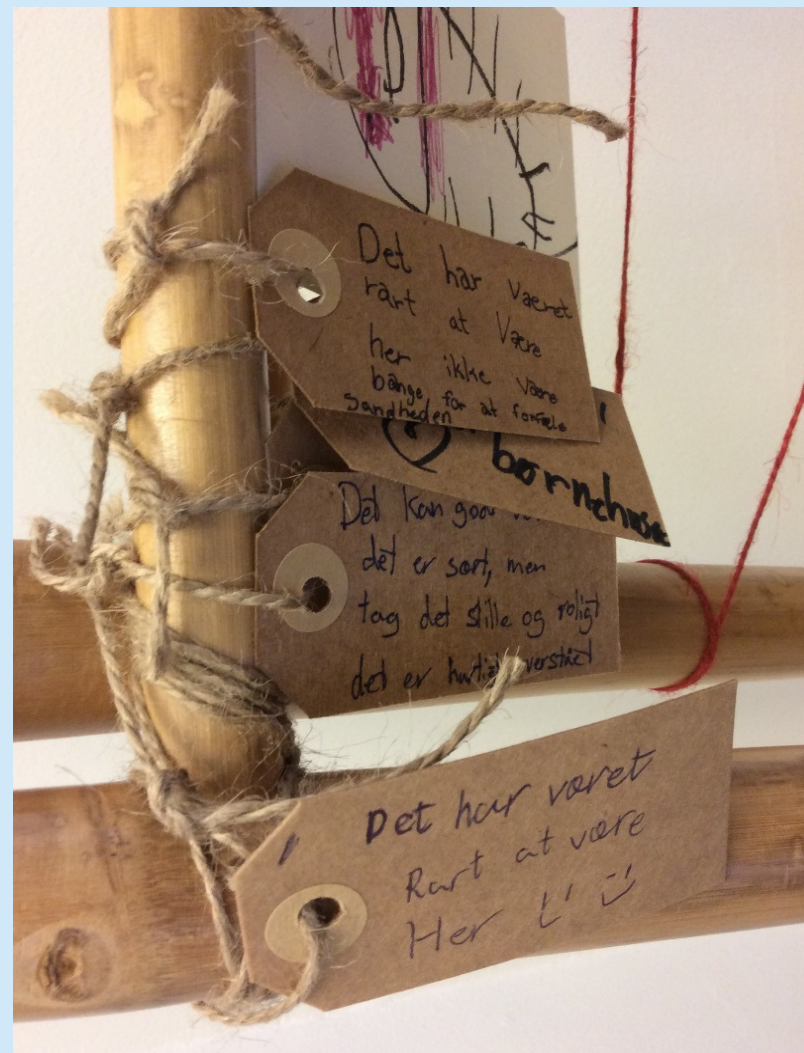 Det har været
rart at Være
her ikke være
bange for at fortæle
Sandheden
børnehuset
Det kan goat
det er sort, men
tag det stille og roligt
det er hurtigt overstået
Det har været
Rart at være
Her